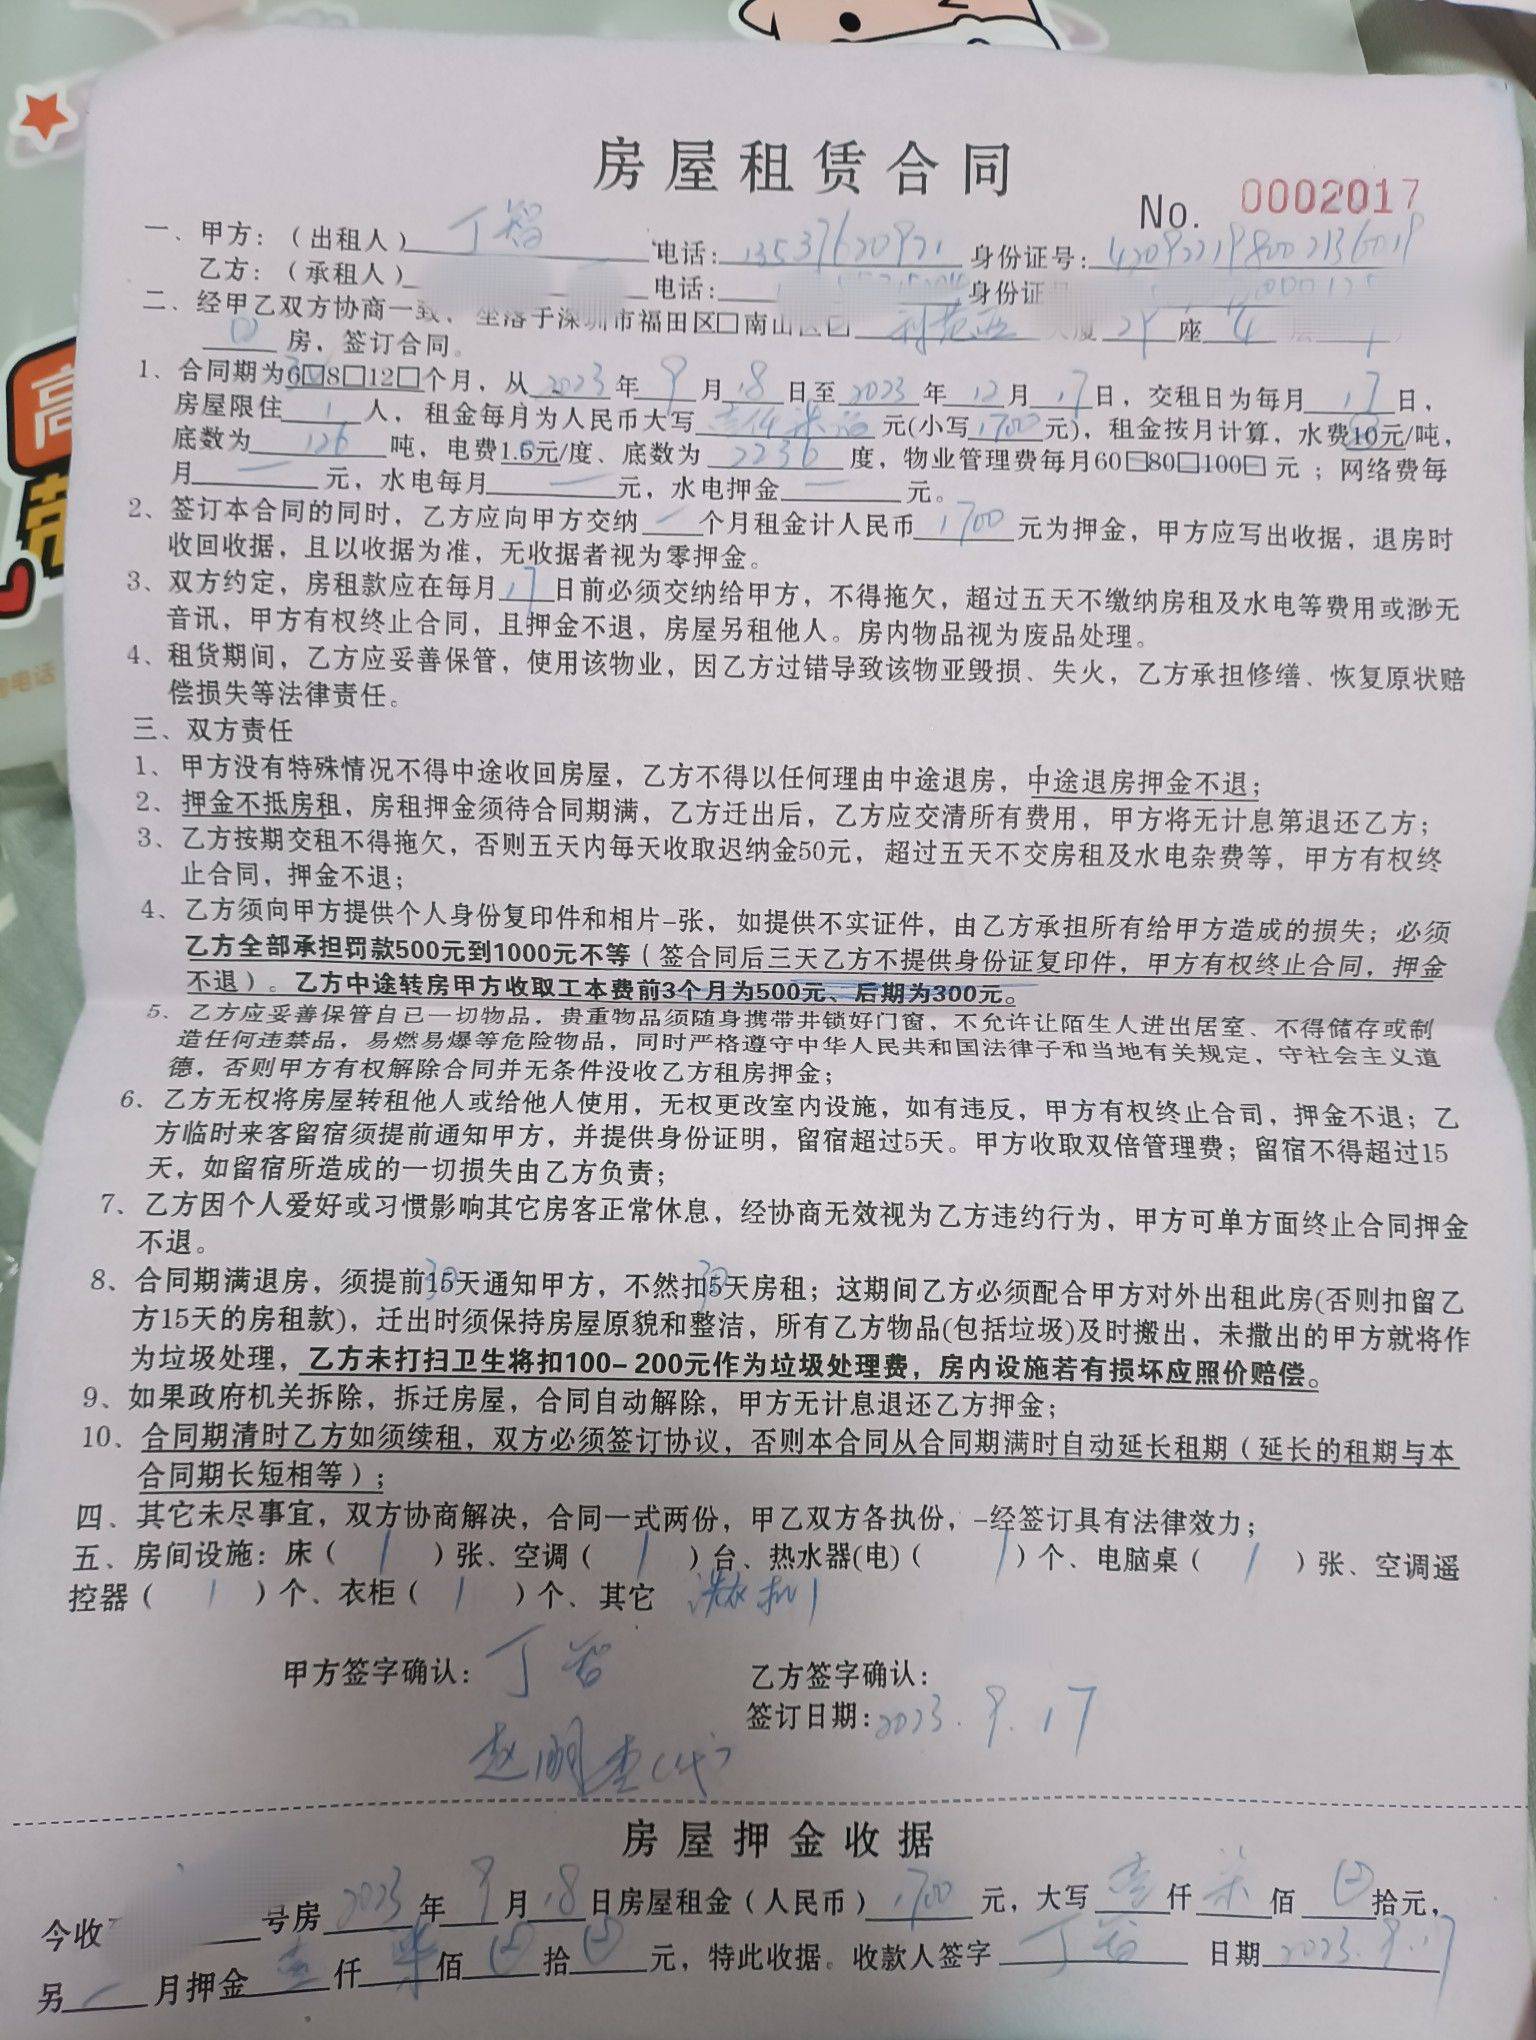 房屋租赁合同
No. 0002017
一、甲方:（出租人）丁智 电话:13537620921 身份证号:
乙方:（承租人） 电话: 身份证
二、经甲乙双方协商一致，坐落于深圳市福田区□南山区 座 4
房，签订合同。
1、合同期为6□8□12□个月，从2023年9月18日至2023年12月17日，交租日为每月17日，
房屋限住1人，租金每月为人民币大写壹仟柒佰元(小写1700元)，租金按月计算，水费10元/吨，
底数为126吨，电费1.5元/度、底数为2236度，物业管理费每月60□80□100□元；网络费每
月一元，水电每月一元，水电押金一元。
2、签订本合同的同时，乙方应向甲方交纳一个月租金计人民币1700元为押金，甲方应写出收据，退房时
收回收据，且以收据为准，无收据者视为零押金。
3、双方约定，房租款应在每月17日前必须交纳给甲方，不得拖欠，超过五天不缴纳房租及水电等费用或渺无
音讯，甲方有权终止合同，且押金不退，房屋另租他人。房内物品视为废品处理。
4、租货期间，乙方应妥善保管，使用该物业，因乙方过错导致该物亚毁损、失火，乙方承担修缮、恢复原状赔
偿损失等法律责任。
三、双方责任
1、甲方没有特殊情况不得中途收回房屋，乙方不得以任何理由中途退房，中途退房押金不退；
2、押金不抵房租，房租押金须待合同期满，乙方迁出后，乙方应交清所有费用，甲方将无计息第退还乙方；
3、乙方按期交租不得拖欠，否则五天内每天收取迟纳金50元，超过五天不交房租及水电杂费等，甲方有权终
止合同，押金不退；
4、乙方须向甲方提供个人身份复印件和相片-张，如提供不实证件，由乙方承担所有给甲方造成的损失；必须
乙方全部承担罚款500元到1000元不等（签合同后三天乙方不提供身份证复印件，甲方有权终止合同，押金
不退）。乙方中途转房甲方收取工本费前3个月为500元、后期为300元。
5、乙方应妥善保管自已一切物品，贵重物品须随身携带井锁好门窗，不允许让陌生人进出居室、不得储存或制
造任何违禁品，易燃易爆等危险物品，同时严格遵守中华人民共和国法律子和当地有关规定，守社会主义道
德，否则甲方有权解除合同并无条件没收乙方租房押金；
6、乙方无权将房屋转租他人或给他人使用，无权更改室内设施，如有违反，甲方有权终止合司，押金不退；乙
方临时来客留宿须提前通知甲方，并提供身份证明，留宿超过5天。甲方收取双倍管理费；留宿不得超过15
天，如留宿所造成的一切损失由乙方负责；
7、乙方因个人爱好或习惯影响其它房客正常休息，经协商无效视为乙方违约行为，甲方可单方面终止合同押金
不退。
8、合同期满退房，须提前30天通知甲方，不然扣30天房租；这期间乙方必须配合甲方对外出租此房(否则扣留乙
方15天的房租款)，迁出时须保持房屋原貌和整洁，所有乙方物品(包括垃圾)及时搬出，未撒出的甲方就将作
为垃圾处理，乙方未打扫卫生将扣100-200元作为垃圾处理费，房内设施若有损坏应照价赔偿。
9、如果政府机关拆除，拆迁房屋，合同自动解除，甲方无计息退还乙方押金；
10、合同期清时乙方如须续租，双方必须签订协议，否则本合同从合同期满时自动延长租期（延长的租期与本
合同期长短相等）；
四、其它未尽事宜，双方协商解决，合同一式两份，甲乙双方各执份，-经签订具有法律效力；
五、房间设施：床（1）张、空调（1）台、热水器(电)（1）个、电脑桌（1）张、空调遥
控器（1）个、衣柜（1）个、其它 洗衣机1
甲方签字确认：丁智 乙方签字确认：
签订日期:2023.9.17
赵明 (代)
房屋押金收据
今收 号房2023年9月18日房屋租金（人民币）1700元，大写壹仟柒佰 拾元，
另一月押金壹仟柒佰 拾 元，特此收据。收款人签字 丁智 日期2023.9.17